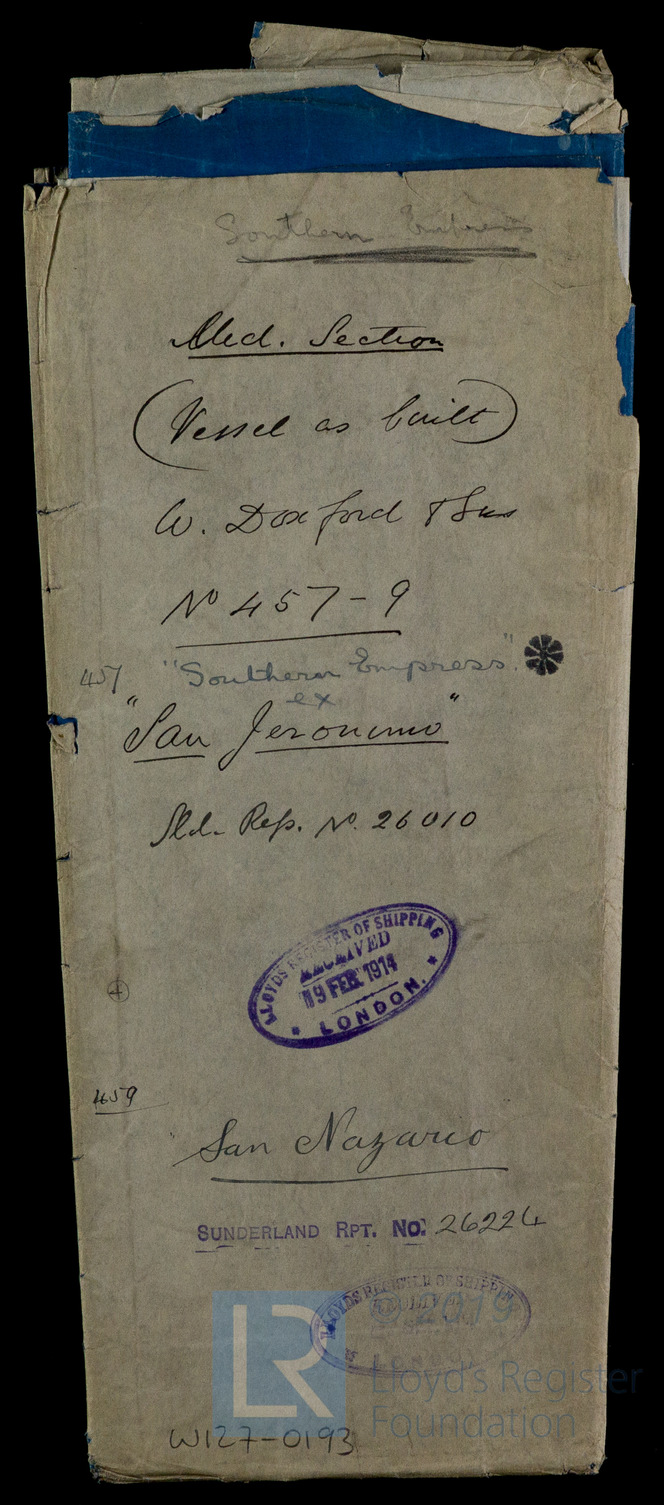 Southern Empress
Mid. Section
(Vessel as built)
W. Doxford & Sons
No 457-9
457 "Southern Empress".
ex
"San Jeronimo"
Sld. Rep. No. 26010
LLOYDS REGISTER OF SHIPPING
RECEIVED
19 FEB. 1914
LONDON.
459
San Nazario
SUNDERLAND RPT. NO. 26224
LLOYDS REGISTER OF SHIPPING
© 2019
Lloyd's Register
Foundation
LR
W127-0193